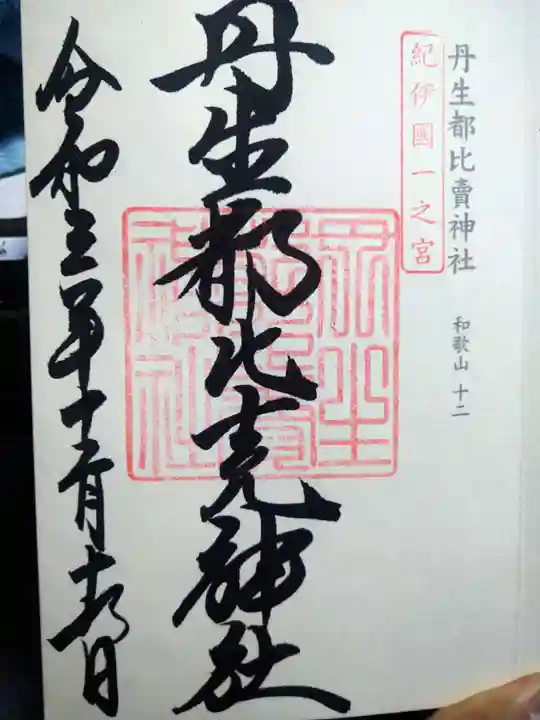 丹生都比賣神社
和歌山 十二
紀伊國一之宮
丹生都比売神社
令和三年十一月